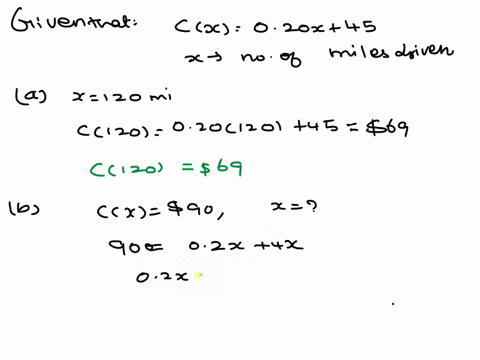 Given that: C(x) = 0.20x + 45
x → no. of miles driven
(a) x = 120 mi
C(120) = 0.20(120) + 45 = $69
C(120) = $69
(b) C(x) = $90, x = ?
90 = 0.2x + 4x
0.2x